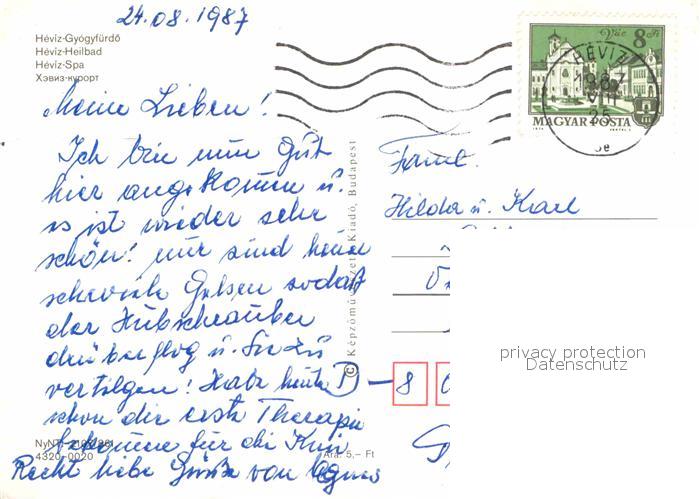 24.08.1987
Hévíz-Gyógyfürdő
Hévíz-Heilbad
Hévíz-Spa
Хэвиз-курорт
Meine Lieben!
Ich bin nun Gut
hier angekommen u.
es ist wieder sehr
schön! nur sind heuer
sehr viele Gelsen sodaß
der Hubschrauber
drüberflog u. Sie zu
vertilgen! Habe heute
schon die erste Therapie
bekommen für die Knie
Recht liebe Grüße von Agnes
4320-0020
Ára: 5,– Ft
© Képzőművészeti Kiadó, Budapest
Vác 8 Ft
MAGYAR POSTA
HÉVÍZ
1987
VIII
25
Faml.
Hilda u. Karl
8
privacy protection
Datenschutz